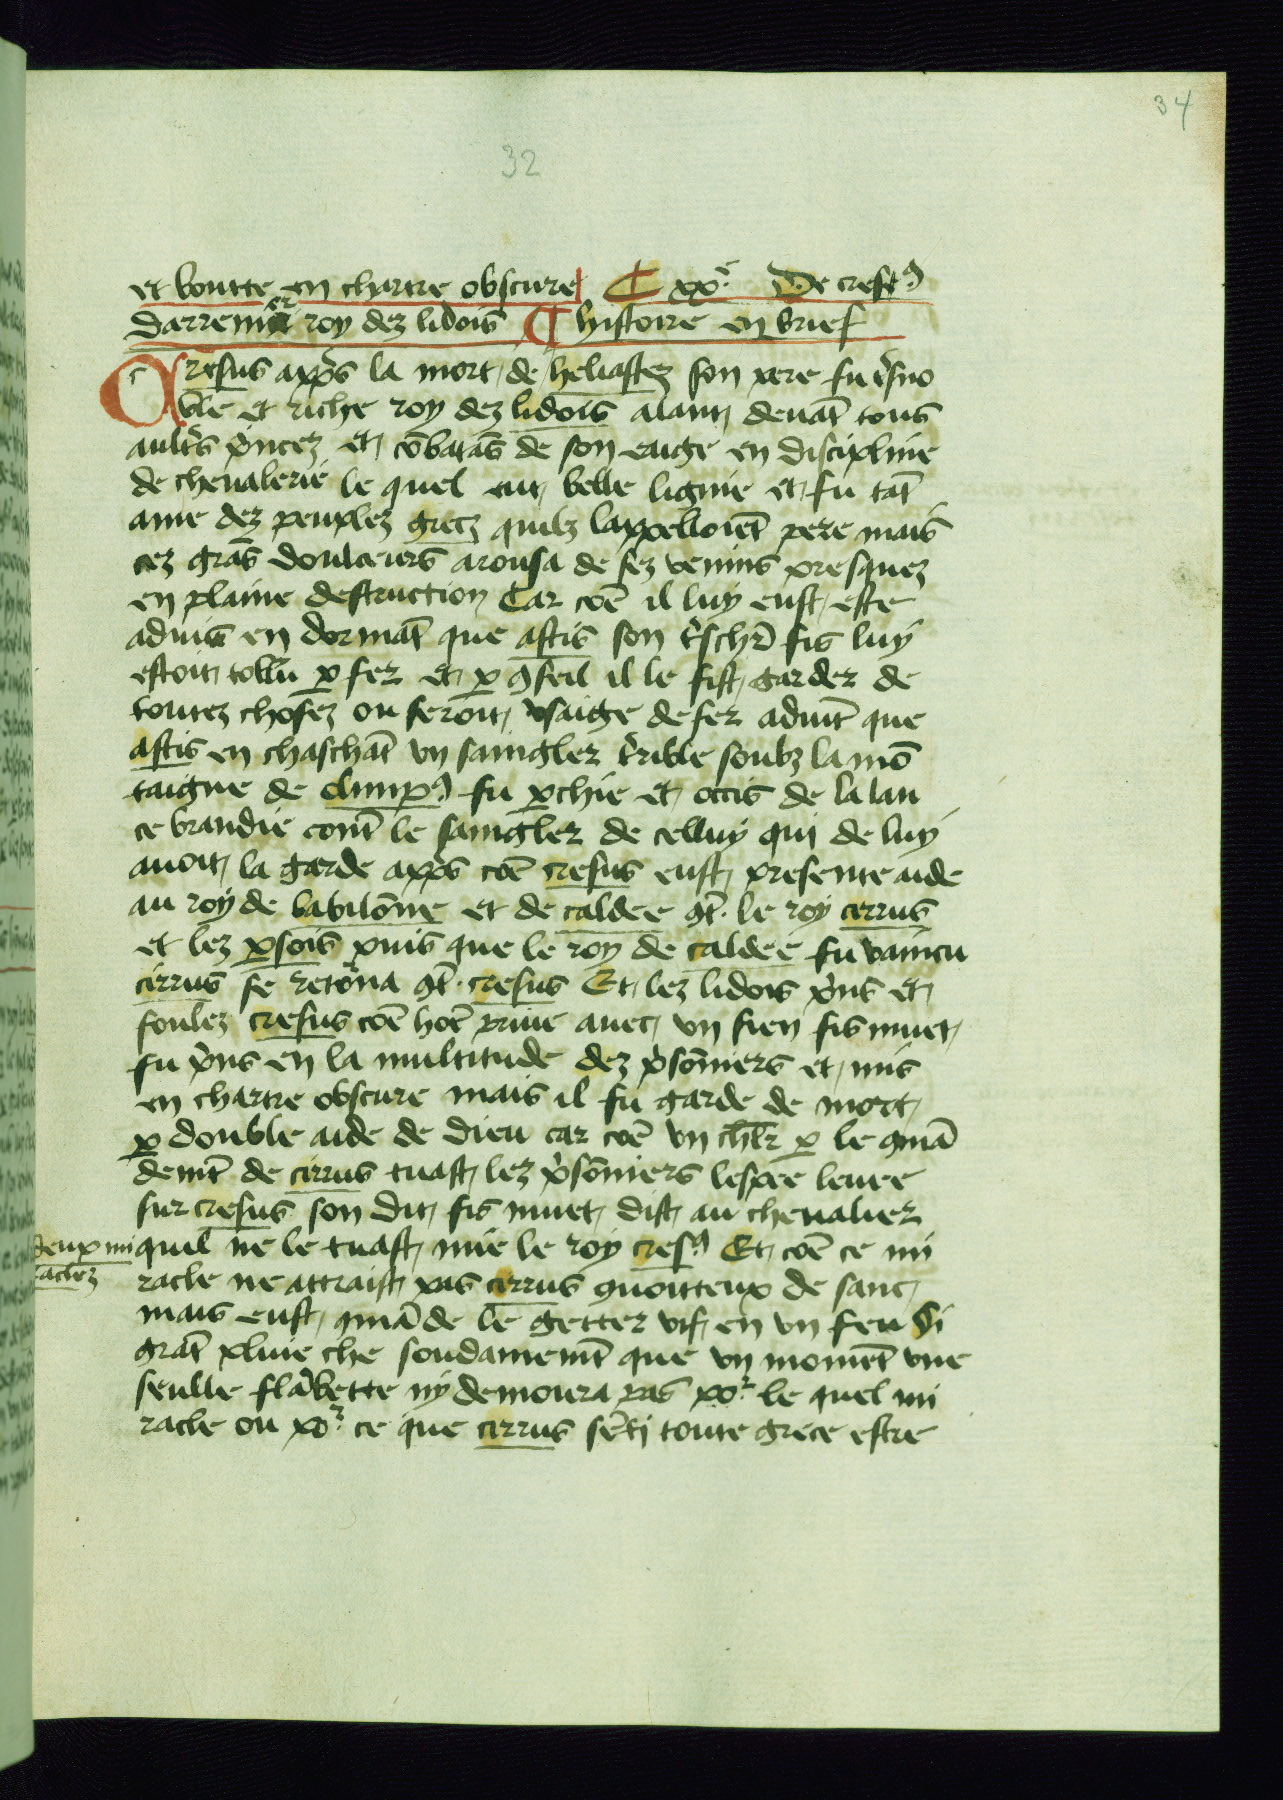 34
32
et boutte en chartre obscure ¶ xxe De cresꝰ
darrenier roy dez lidois ¶ histoire en brief
Cresus appͬs la mort de heliastez son pere fu tͬsno
ble et riche roy dez lidois alant devāt tous
aultͬs pͥncez et cōbatās de son euage en discipline
de chevalerie le quel eut belle lignie et fu tāt
ame dez peuplez grecz quilz lappelloiēt pere mais
cez grās doulceurs arousa de sez venins presquez
en plaine destruction Car cōe il luy eust este
advis en dormāt que astis son tͬschr̄ fis luy
estoit tollu ꝑ fer et ꝑ ꝯseil il le fist garder de
toutez chosez ou seroit usaige de fer advīt que
astis en chaschāt vn sainglier tͬrible soubz la mō
taigne de olimpꝰ fu ꝑchie et occis de la lan
ce brandie contͬ le saingler de celluy qui de luy
avoit la garde appͬs cōe cresus eust presente aide
au roy de babilōne et de caldee ꝯtͬ le roy cirrus
et lez ꝑsois puis que le roy de caldee fu vaincu
cirrus se retōna ꝯtͬ cresus Et lez lidois pͥns et
foulez cresus cōe hōe prive avec vn sien fis muet
fu pͥns en la multitude dez pͥsōniers et mis
en chartre obscure mais il fu garde de mort
ꝑ double aide de dieu car cōe vn chl̄r ꝑ le ꝯmā
demt̄ de cirrus tuast lez pͥsōniers lespee levee
sur cresus son dit fis muet dist au chevalier
deux mi
raclez
quil ne le tuast mie le roy cresꝰ Et cōe ce mi
racle ne attraist pas cirrus ꝯvoitteux de sanc
mais eust ꝯmāde le getter vif en vn feu Si
grāt pluie che soudainemt̄ que vn momēt vne
seulle flābette ny demoura pas poͬ le quel mi
racle ou poͬ ce que cirrus sēti toute grece estre